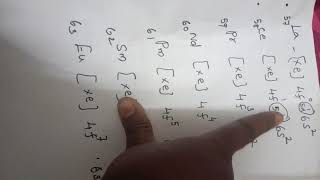 57 La - [xe] 4f⁰ 6s²
58 Ce [xe] 4f 6s²
Pr [xe] 4f³ ²
60 Nd [xe] 4f⁴
61 Pm [xe] 4f⁵
62 Sm [xe
63 Eu [xe] 4f⁷ . 6s